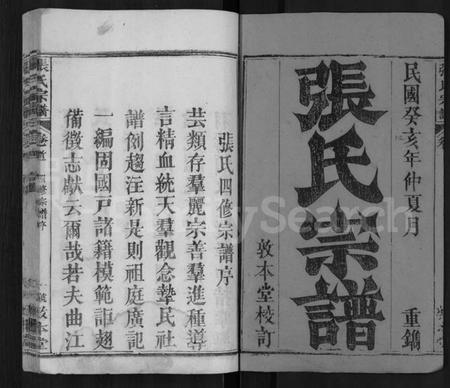 民國癸亥年仲夏月
張氏宗譜
敦本堂校訂
重鐫
張氏四修宗譜序
芸類存羣麗宗善羣進種導
言精血統天羣觀念摯民社
譜例趨注新是則祖庭廣記
一編周國戸諸籍模範詎翅
備徵志獻云爾哉若夫曲江
張氏宗譜
卷首
敦本堂
FamilySearch